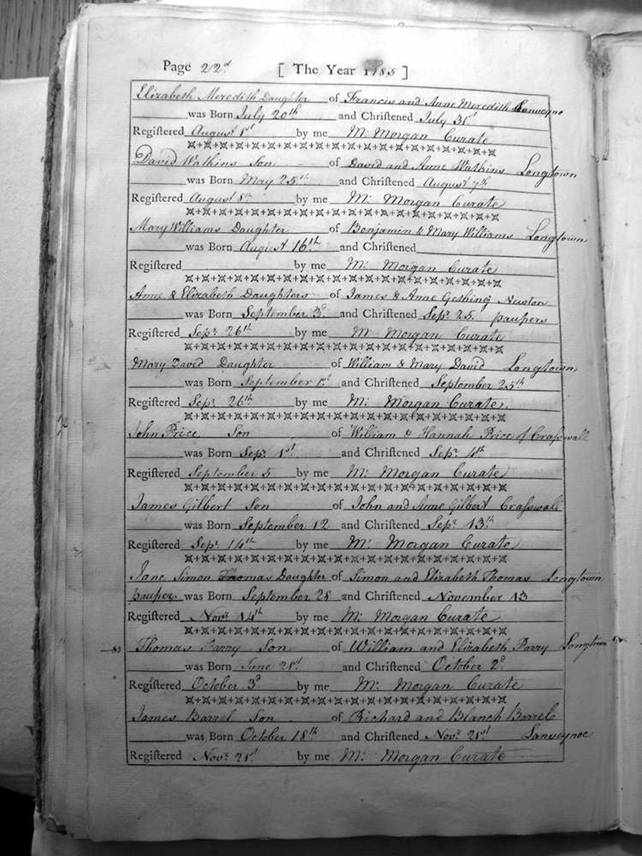 Page 22d [ The Year 1785 ]
Elizabeth Meredith Daughter of Francis and Anne Meredith Lanveyno
was Born July 20th and Chriſtened July 31st
Regiſtered August 1st by me Mr. Morgan Curate
David Watkins Son of David and Anne Watkins Longtown
was Born May 25th and Chriſtened August 7th
Regiſtered August 8th by me Mr. Morgan Curate
Mary Williams Daughter of Benjamin & Mary Williams Longtown
was Born August 16th and Chriſtened
Regiſtered by me Mr. Morgan Curate
Anne & Elizabeth Daughters of James & Anne Gething Newton
was Born September 3d and Chriſtened Sepr. 25. paupers
Regiſtered Sepr. 26th by me Mr. Morgan Curate
Mary David Daughter of William & Mary David Longtown
was Born September and Chriſtened September 25th
Regiſtered Sepr. 26th by me Mr. Morgan Curate
John Price Son of William & Hannah Price of Craſswall
was Born Sepr. 1st and Chriſtened Sepr. 4th
Regiſtered September 5 by me Mr. Morgan Curate
James Gilbert Son of John and Anne Gilbert Craſswall
was Born September 12 and Chriſtened Sepr. 13th
Regiſtered Sepr. 14th by me Mr. Morgan Curate
Jane Simon Thomas Daughter of Simon and Elizabeth Thomas Longtown
pauper was Born September 28 and Chriſtened November 13
Regiſtered Novr. 14th by me Mr. Morgan Curate
Thomas Parry Son of William and Elizabeth Parry Longtown
was Born June 28th and Chriſtened October 2d
Regiſtered October 3d by me Mr. Morgan Curate
James Barrel Son of Richard and Blanch Birrel
was Born October 18th and Chriſtened Novr. 21st Lanveynoe
Regiſtered Novr. 21st by me Mr. Morgan Curate